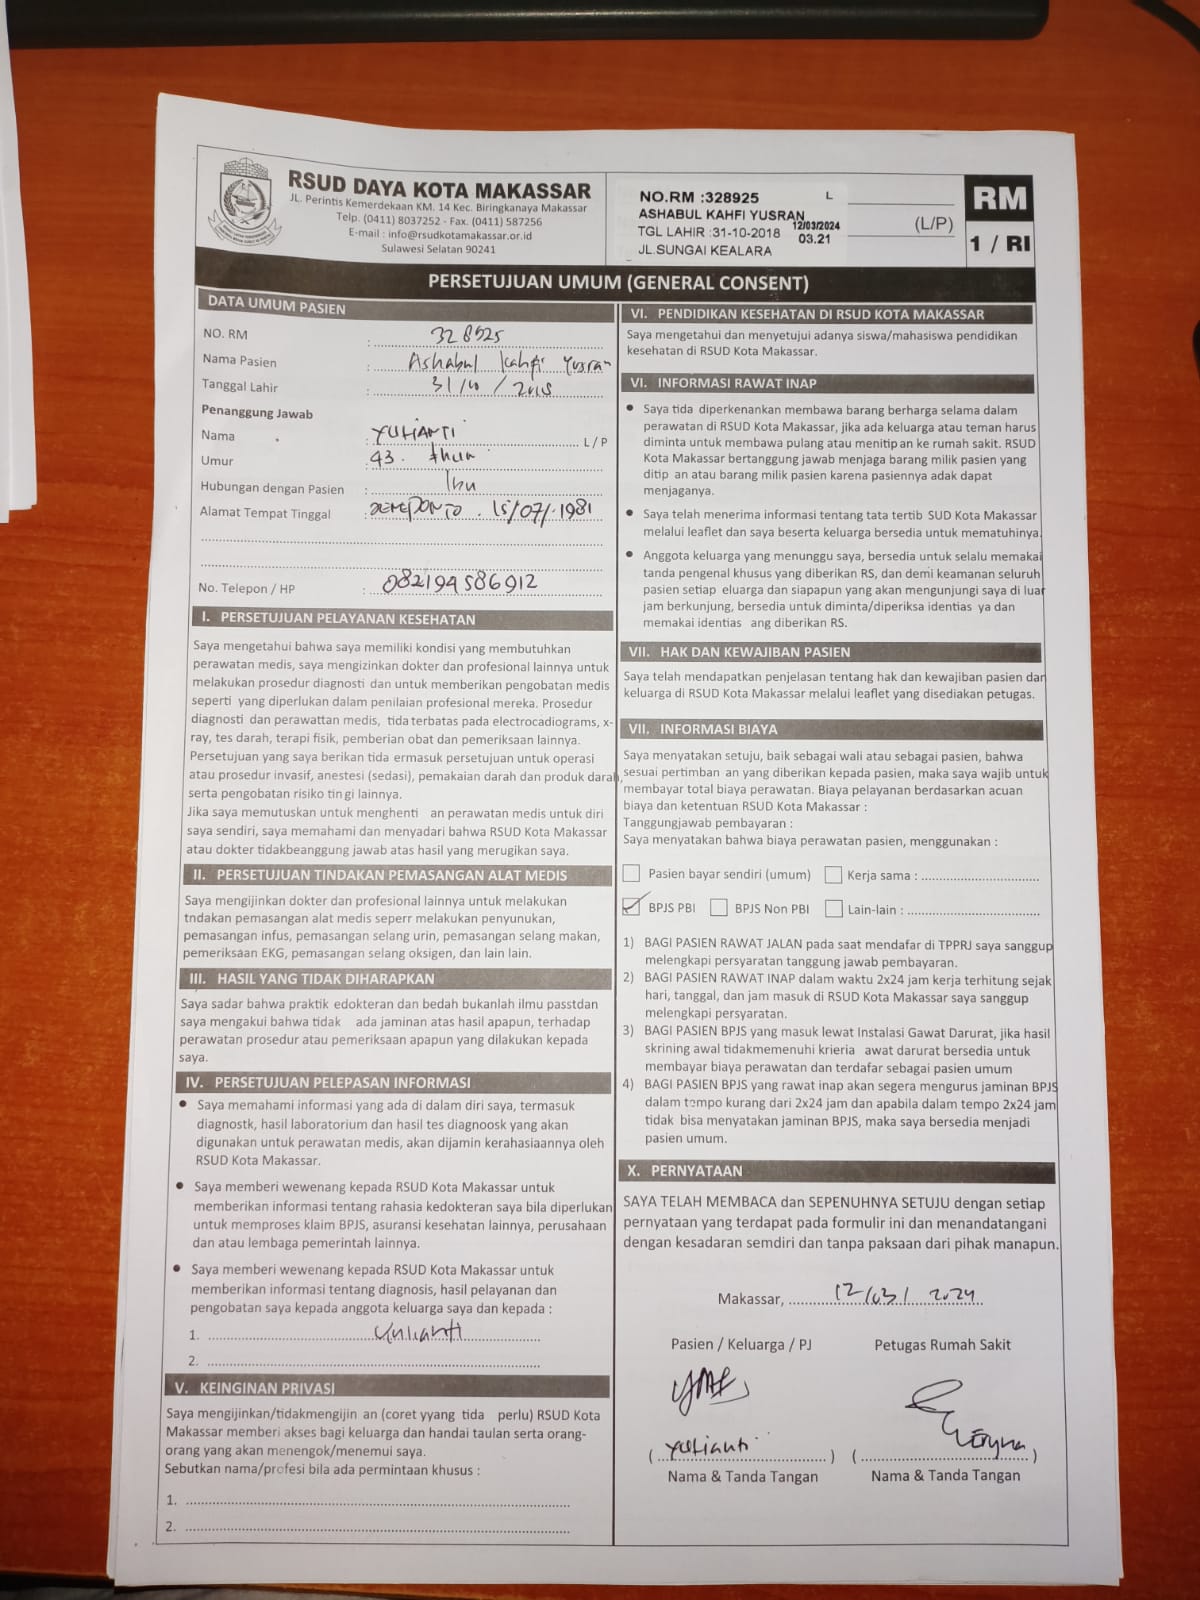 RSUD DAYA KOTA MAKASSAR
JL. Perintis Kemerdekaan KM. 14 Kec. Biringkanaya Makassar
Telp. (0411) 8037252 - Fax. (0411) 587256
E-mail : info@rsudkotamakassar.or.id
Sulawesi Selatan 90241
NO.RM :328925 L
ASHABUL KAHFI YUSRAN
TGL LAHIR :31-10-2018 12/03/2024
03.21
JL.SUNGAI KEALARA
(L/P)
RM
1 / RI
PERSETUJUAN UMUM (GENERAL CONSENT)
DATA UMUM PASIEN
NO. RM : 328925
Nama Pasien : Ashabul Kahfi Yusran
Tanggal Lahir : 31/10/2018
Penanggung Jawab
Nama : YULIANTI L / P
Umur : 43.
Hubungan dengan Pasien : Ibu
Alamat Tempat Tinggal : JENEPONTO . 15/07/.1981
No. Telepon / HP : 082194586912
I. PERSETUJUAN PELAYANAN KESEHATAN
Saya mengetahui bahwa saya memiliki kondisi yang membutuhkan
perawatan medis, saya mengizinkan dokter dan profesional lainnya untuk
melakukan prosedur diagnosti dan untuk memberikan pengobatan medis
seperti yang diperlukan dalam penilaian profesional mereka. Prosedur
diagnosti dan perawattan medis, tida terbatas pada electrocadiograms, x-
ray, tes darah, terapi fisik, pemberian obat dan pemeriksaan lainnya.
Persetujuan yang saya berikan tida ermasuk persetujuan untuk operasi
atau prosedur invasif, anestesi (sedasi), pemakaian darah dan produk darah,
serta pengobatan risiko tin gi lainnya.
Jika saya memutuskan untuk menghenti an perawatan medis untuk diri
saya sendiri, saya memahami dan menyadari bahwa RSUD Kota Makassar
atau dokter tidakbeanggung jawab atas hasil yang merugikan saya.
II. PERSETUJUAN TINDAKAN PEMASANGAN ALAT MEDIS
Saya mengijinkan dokter dan profesional lainnya untuk melakukan
tndakan pemasangan alat medis seperr melakukan penyunukan,
pemasangan infus, pemasangan selang urin, pemasangan selang makan,
pemeriksaan EKG, pemasangan selang oksigen, dan lain lain.
III. HASIL YANG TIDAK DIHARAPKAN
Saya sadar bahwa praktik edokteran dan bedah bukanlah ilmu passtdan
saya mengakui bahwa tidak ada jaminan atas hasil apapun, terhadap
perawatan prosedur atau pemeriksaan apapun yang dilakukan kepada
saya.
IV. PERSETUJUAN PELEPASAN INFORMASI
• Saya memahami informasi yang ada di dalam diri saya, termasuk
diagnostk, hasil laboratorium dan hasil tes diagnoosk yang akan
digunakan untuk perawatan medis, akan dijamin kerahasiaannya oleh
RSUD Kota Makassar.
• Saya memberi wewenang kepada RSUD Kota Makassar untuk
memberikan informasi tentang rahasia kedokteran saya bila diperlukan
untuk memproses klaim BPJS, asuransi kesehatan lainnya, perusahaan
dan atau lembaga pemerintah lainnya.
• Saya memberi wewenang kepada RSUD Kota Makassar untuk
memberikan informasi tentang diagnosis, hasil pelayanan dan
pengobatan saya kepada anggota keluarga saya dan kepada :
1. Yulianti
2.
V. KEINGINAN PRIVASI
Saya mengijinkan/tidakmengijin an (coret yyang tida perlu) RSUD Kota
Makassar memberi akses bagi keluarga dan handai taulan serta orang-
orang yang akan menengok/menemui saya.
Sebutkan nama/profesi bila ada permintaan khusus :
1.
2.
VI. PENDIDIKAN KESEHATAN DI RSUD KOTA MAKASSAR
Saya mengetahui dan menyetujui adanya siswa/mahasiswa pendidikan
kesehatan di RSUD Kota Makassar.
VI. INFORMASI RAWAT INAP
• Saya tida diperkenankan membawa barang berharga selama dalam
perawatan di RSUD Kota Makassar, jika ada keluarga atau teman harus
diminta untuk membawa pulang atau menitip an ke rumah sakit. RSUD
Kota Makassar bertanggung jawab menjaga barang milik pasien yang
ditip an atau barang milik pasien karena pasiennya adak dapat
menjaganya.
• Saya telah menerima informasi tentang tata tertib SUD Kota Makassar
melalui leaflet dan saya beserta keluarga bersedia untuk mematuhinya.
• Anggota keluarga yang menunggu saya, bersedia untuk selalu memakai
tanda pengenal khusus yang diberikan RS, dan demi keamanan seluruh
pasien setiap eluarga dan siapapun yang akan mengunjungi saya di luar
jam berkunjung, bersedia untuk diminta/diperiksa identias ya dan
memakai identias ang diberikan RS.
VII. HAK DAN KEWAJIBAN PASIEN
Saya telah mendapatkan penjelasan tentang hak dan kewajiban pasien dan
keluarga di RSUD Kota Makassar melalui leaflet yang disediakan petugas.
VII. INFORMASI BIAYA
Saya menyatakan setuju, baik sebagai wali atau sebagai pasien, bahwa
sesuai pertimban an yang diberikan kepada pasien, maka saya wajib untuk
membayar total biaya perawatan. Biaya pelayanan berdasarkan acuan
biaya dan ketentuan RSUD Kota Makassar :
Tanggungjawab pembayaran :
Saya menyatakan bahwa biaya perawatan pasien, menggunakan :
Pasien bayar sendiri (umum) Kerja sama :
BPJS PBI BPJS Non PBI Lain-lain :
1) BAGI PASIEN RAWAT JALAN pada saat mendafar di TPPRJ saya sanggup
melengkapi persyaratan tanggung jawab pembayaran.
2) BAGI PASIEN RAWAT INAP dalam waktu 2x24 jam kerja terhitung sejak
hari, tanggal, dan jam masuk di RSUD Kota Makassar saya sanggup
melengkapi persyaratan.
3) BAGI PASIEN BPJS yang masuk lewat Instalasi Gawat Darurat, jika hasil
skrining awal tidakmemenuhi krieria awat darurat bersedia untuk
membayar biaya perawatan dan terdafar sebagai pasien umum
4) BAGI PASIEN BPJS yang rawat inap akan segera mengurus jaminan BPJS
dalam tempo kurang dari 2x24 jam dan apabila dalam tempo 2x24 jam
tidak bisa menyatakan jaminan BPJS, maka saya bersedia menjadi
pasien umum.
X. PERNYATAAN
SAYA TELAH MEMBACA dan SEPENUHNYA SETUJU dengan setiap
pernyataan yang terdapat pada formulir ini dan menandatangani
dengan kesadaran semdiri dan tanpa paksaan dari pihak manapun.
Makassar, 12/03/2024
Pasien / Keluarga / PJ Petugas Rumah Sakit
( Yulianti ) ( )
Nama & Tanda Tangan Nama & Tanda Tangan